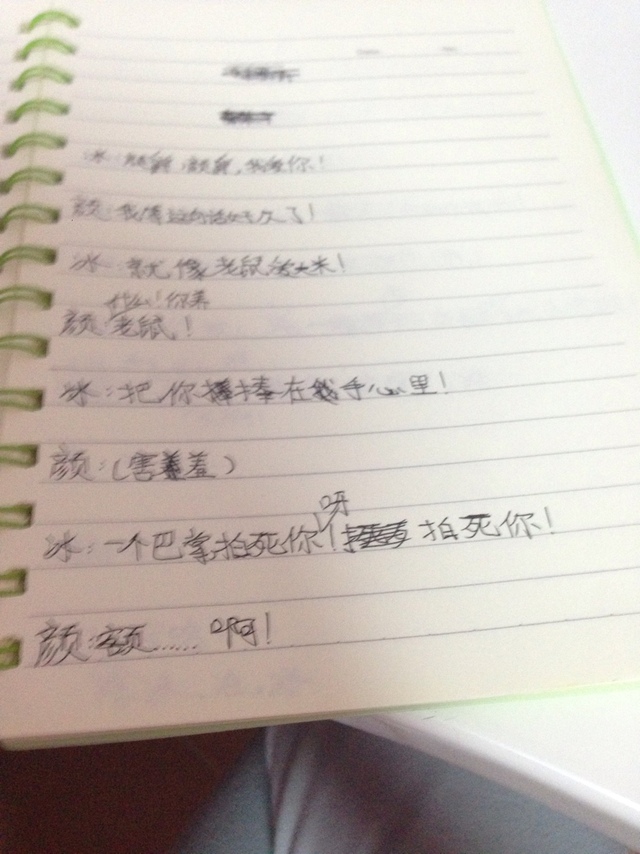 冰：颜颜，颜颜，我爱你！
颜：我等这句话好久了！
冰：就像老鼠爱大米！
什么！你弄
颜：老鼠！
冰：把你捧在我手心里！
颜：（害羞）
呀
冰：一个巴掌拍死你！拍死你！
颜：额……啊！